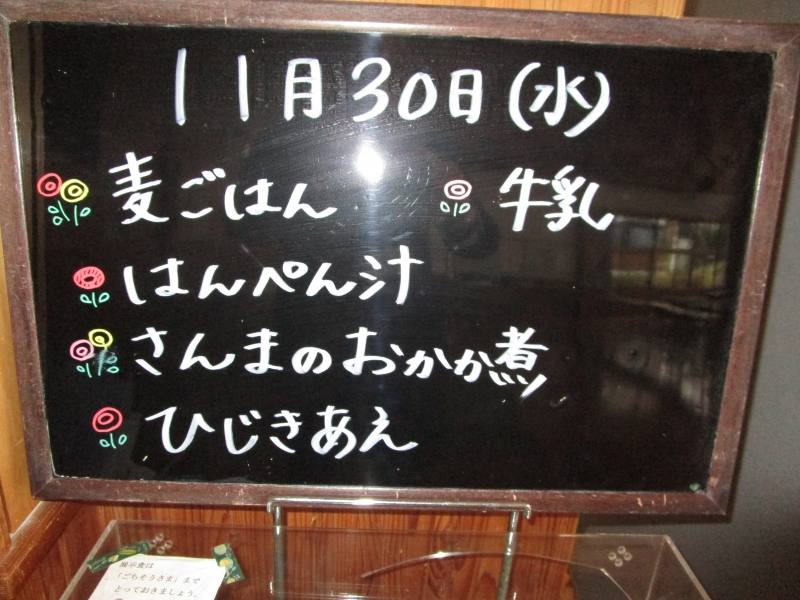 11月30日(水)
麦ごはん 牛乳
はんぺん汁
さんまのおかか煮
ひじきあえ
展示食は
「ごちそうさま」まで
とっておきましょう。